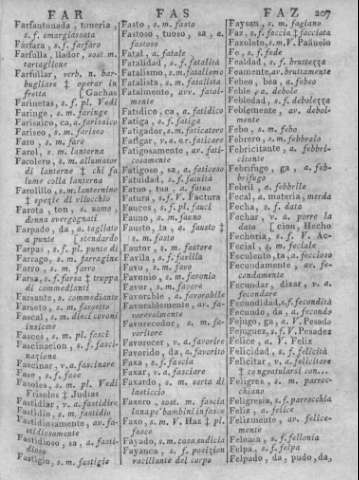 FAR
FAS
FAZ 207
Farfantonada, tonería,
s. f. smargiassata
Farfara, s. f. farfaro
Farfulla, llador, sost. m.
tartaglione
Farfullar, verb. n. bar-
bugliare ‡ operar in
fretta [Gachas
Farinetas, s. f. pl. Vedi
Faringe, s. m. faringe
Farisaico, ca, a. farisaico
Fariseo, s. m. fariseo
Faro, s. m. faro
Farol, s. m. lanterna
Farolero, s. m. allumator
di lanterne ‡ chi fa
lume colla lanterna
Farolillo, s. m. lanternino
‡ spezie di vilucchio
Farota, ton, s. uomo,
donna svergognati
Farpado, da, a. tagliato
a punte [stendardo
Farpas, s. f. pl. punte di
Farrago, s. m. farragine
Farro, s. m. farro
Farsa, s. f. farsa ‡ truppa
di commedianti
Farsante, s. commediante
Fascal, s. m. dieci covoni
insieme
Fasces, s. m. pl. fasci
Fascinacion, s. f. fasci-
nazione
Fascinar, v. a. fascinare
Fase, s. f. fase
Fasoles, s. m. pl. Vedi
Frisoles ‡ Judias
Fastidiar, v. a. fastidire
Fastidio, s. m. fastidio
Fastidiosamente, av. fa-
stidiosamente
Fastidioso, sa, a. fasti-
dioso
Fastigio, s. m. fastigio
Fasto, s. m. fasto
Fastoso, tuoso, sa, a.
fastoso
Fatal, a. fatale
Fatalidad, s. f. fatalità
Fatalismo, s. m. fatalismo
Fatalista, s. m. fatalista
Fatalmente, avv. fatal-
mente
Fatídico, ca, a. fatidico
Fatiga, s. f. fatiga
Fatigador, s. faticatore
Fatigar, v. a. faticare
Fatigosamente, av. fati-
cosamente
Fatigoso, sa, a. faticoso
Fatuidad, s. f. fatuità
Fatuo, tua, a. fatuo
Fatura, s. f. V. Factura
Fauces, s. f. pl. fauci
Fauno, s. m. fauno
Fausto, ta, a. fausto ‡
s. m. fasto
Fautor, s. m. fautore
Favila, s. f. favilla
Favo, s. m. favo
Favonio, s. m. favonio
Favor, s. m. favore
Favorable, a. favorabile
Favorablemente, av. fa-
vorevolmente
Favorecedor, s. m. fa-
voritore
Favorecer, v. a. favorire
Favorido, da, a. favorito
Faxa, s. f. fascia
Faxar, v. a. fasciare
Faxardo, s. m. sorta di
pasticcio
Faxero, sost. m. fascia
lana pe' bambini in fasce
Faxo, s. m. V. Haz ‡ pl.
fasce
Fayado, s. m. casa sudicia
Fayanca, s. f. position
vacillante del corpo
Faysan, s. m. fagiano
Faz, s. f. faccia ‡ facciata
Fazoleto, s. m. V. Pañuelo
Fe, s. f. fede
Fealdad, s. f. bruttezza
Feamente, av. bruttamente
Febeo, bea, a. febeo
Feble, a. debole
Febledad, s. f. debolezza
Feblemente, av. debol-
mente
Febo, s. m. febo
Febrero, s. m. febbraio
Febricitante, a. febbri-
citante
Febrífugo, ga, a. feb-
brifugo
Febril, a. febbrile
Fecal, a. materia, merda
Fecha, s. f. data
Fechar, v. a. porre la
data [cion, Hecho
Fechoría, s. f. V. Ac-
Fecial, s. m. feciale
Feculento, ta, a. feccioso
Fecundamente, av. fe-
condamente
Fecundar, dizar, v. a.
fecondare
Fecundidad, s. f. fecondità
Fecundo, da, a. fecondo
Fejugo, ga, a. V. Pesado
Feligues, s. f. V. Pesadez
Felice, a. V. Feliz
Felicidad, s. f. felicità
Felicitar, v. a. felicitare
‡ congratularsi con...
Feligres, s. m. parroc-
chiano
Feligresía, s. f. parrocchia
Feliz, a. felice
Felizmente, av. felice-
mente
Felonía, s. f. fellonia
Felpa, s. f. felpa
Felpado, da, pudo, da,